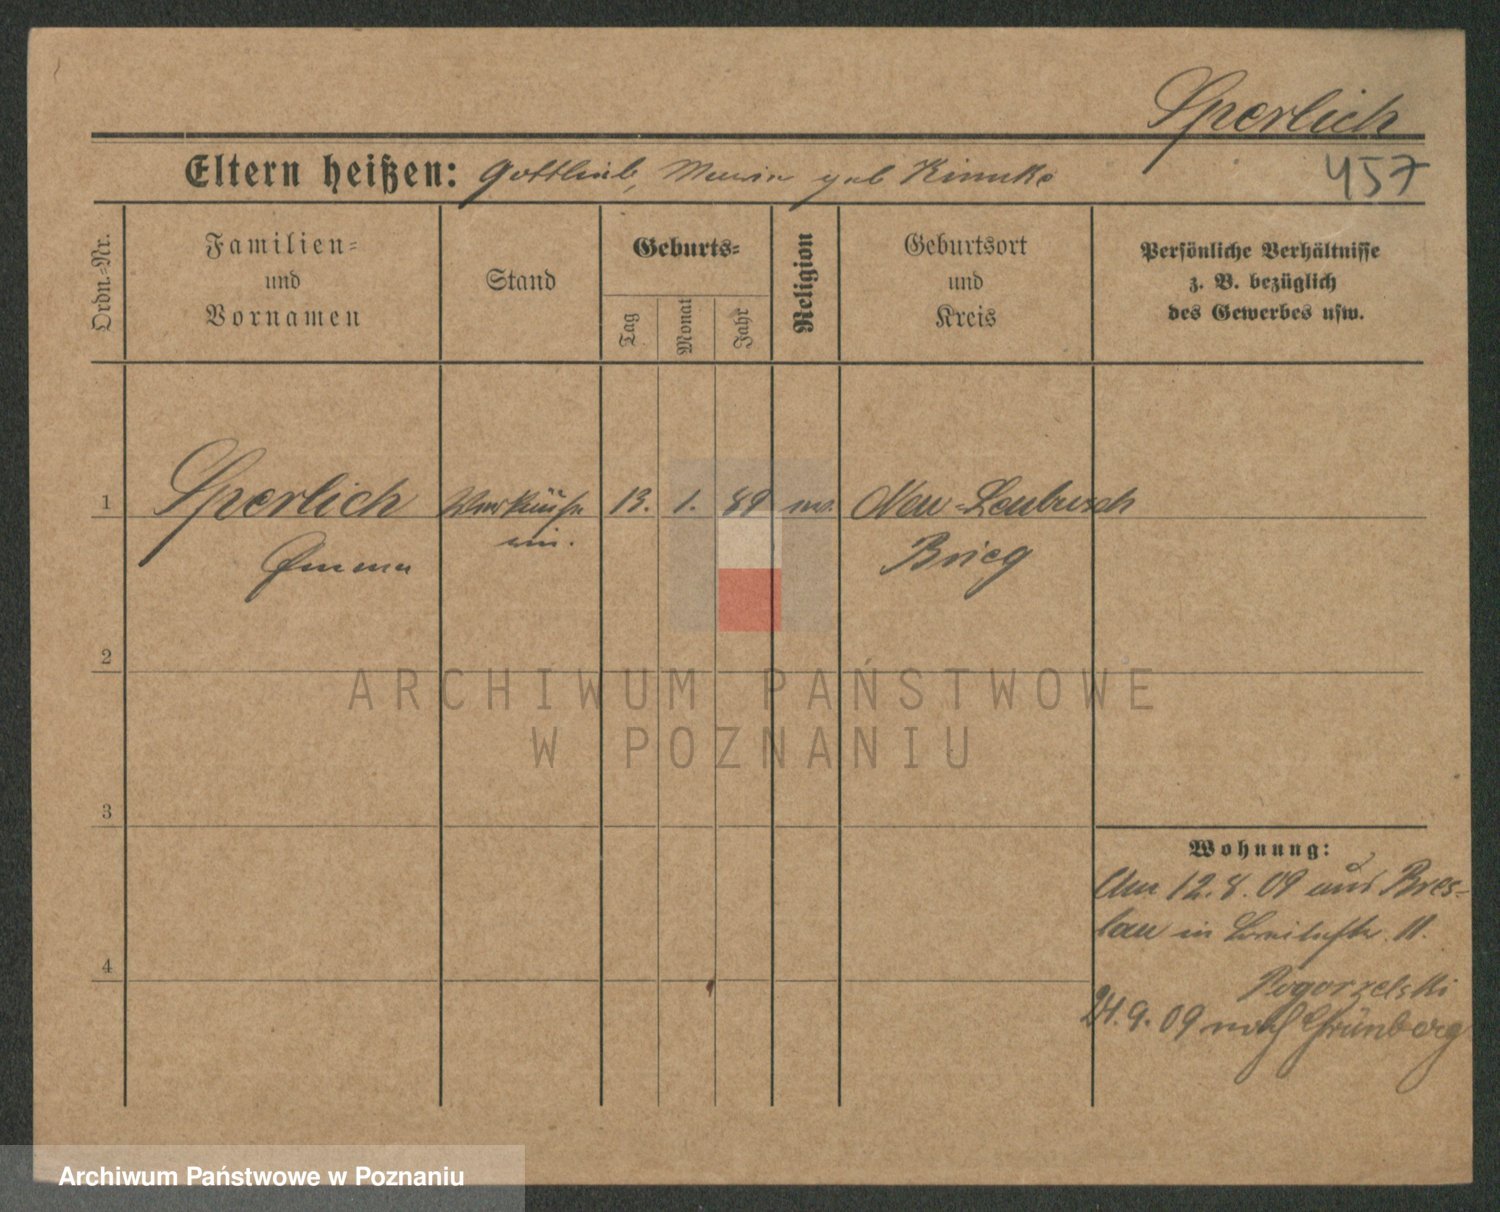 Sperlich
457
Eltern heißen: Gottlieb, Maria geb Kimnke
Ordn.-Nr.
Familien-
und
Vornamen
Stand
Geburts-
Tag
Monat
Jahr
Religion
Geburtsort
und
Kreis
Persönliche Verhältnisse
z. B. bezüglich
des Gewerbes usw.
1 Sperlich Verkäufe 13. 1. 89 Neu-Leubusch
Emma rin. Brieg
2
3
Wohnung:
Am 12.8.09 aus Bres-
lau in Breitestr. 11.
4
Pogorzelski
24.9.09 nach Grünberg
ARCHIWUM PAŃSTWOWE
W POZNANIU
Archiwum Państwowe w Poznaniu